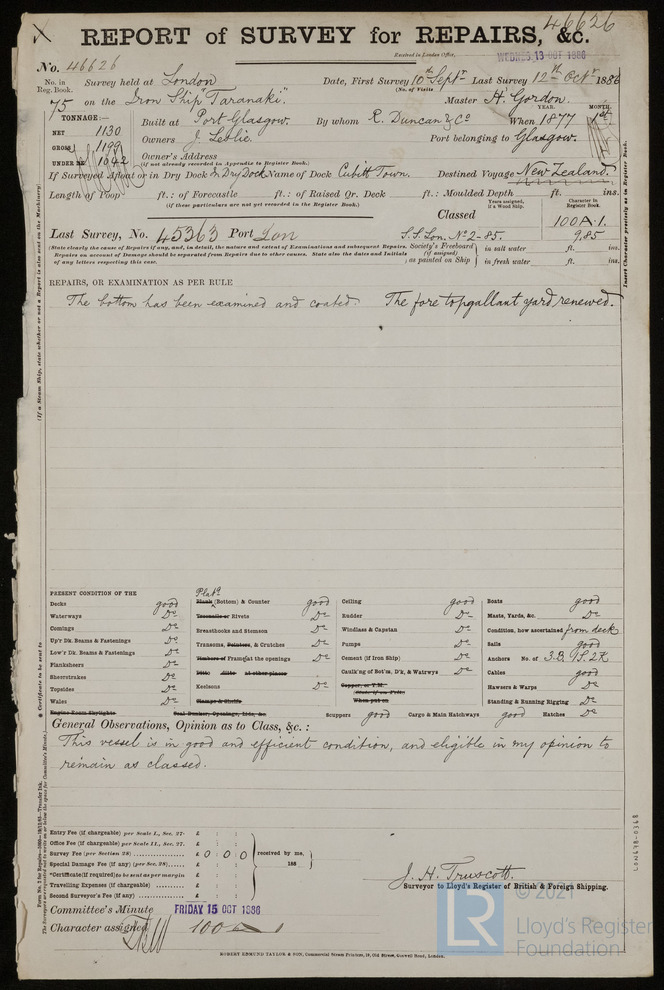 46626
X REPORT of SURVEY for REPAIRS, &c.
Received in London Office, WEDNES. 13 OCT 1886
No. 46626
No. in Reg. Book. Survey held at London Date, First Survey 10th Septr Last Survey 12th Octr 1886
(No. of Visits
75 on the Iron Ship "Taranaki". Master H. Gordon.
TONNAGE:— Built at Port Glasgow. By whom R. Duncan & Co When 1877 YEAR. MONTH.
NET 1130
GROSS 1199 Owners J. Leslie. Port belonging to Glasgow.
UNDER DK 1042 Owner's Address
(if not already recorded in Appendix to Register Book.)
If Surveyed Afloat or in Dry Dock In Dry Dock Name of Dock Cubitt Town. Destined Voyage New Zealand.
Length of Poop ft.: of Forecastle ft.: of Raised Qr. Deck ft.: Moulded Depth ft. ins.
(if these particulars are not yet recorded in the Register Book.)
Years assigned, if a Wood Ship. Character in Register Book.
Classed 100A.1.
Last Survey, No. 45363 Port Lon S.S. Lon. No 2-85. 9,85
(State clearly the cause of Repairs if any, and, in detail, the nature and extent of Examinations and subsequent Repairs.
Repairs on account of Damage should be separated from Repairs due to other causes. State also the dates and Initials
of any letters respecting this case.
Society's Freeboard (if assigned) as painted on Ship in salt water ft. ins.
in fresh water ft. ins.
REPAIRS, OR EXAMINATION AS PER RULE
The bottom has been examined and coated. The fore topgallant yard renewed.
PRESENT CONDITION OF THE
Decks good
Waterways Do
Comings Do
Up'r Dk. Beams & Fastenings Do
Low'r Dk. Beams & Fastenings Do
Planksheers Do
Sheerstrakes Do
Topsides Do
Wales Do
Engine Room Skylights
Coal Bunker, Openings, Lids, &c.
Platg
Plank (Bottom) & Counter good
Treenails or Rivets Do
Breasthooks and Stemson Do
Transoms, Pointers, & Crutches Do
Timbers of Frame at the openings Do
Ditto Ditto at other places
Keelsons Do
Clamps & Shelfs
Ceiling good
Rudder Do
Windlass & Capstan Do
Pumps Do
Cement (if Iron Ship) Do
Caulk'ng of Bot'm, D'k, & Watrwys Do
Copper, or Y.M.
(State if on Felt)
When put on
Scuppers good Cargo & Main Hatchways good Hatches Do
Boats good
Masts, Yards, &c. Do
Condition, how ascertained from deck
Sails good
Anchors No. of 3.B. 1S. 2K
Cables good
Hawsers & Warps Do
Standing & Running Rigging Do
General Observations, Opinion as to Class, &c. :
This vessel is in good and efficient condition, and eligible in my opinion to
remain as classed.
Entry Fee (if chargeable) per Scale I., Sec. 27. £ : :
Office Fee (if chargeable) per Scale II., Sec. 27. £ : :
Survey Fee (per Section 28) £ 0 : 0 : 0 received by me,
Special Damage Fee (if any) (per Sec. 28) £ : : 188
*Certificate (if required) to be sent as per margin £ : :
Travelling Expenses (if chargeable) £ : :
Second Surveyor's Fee (if any) £ : :
J. H. Truscott.
Surveyor to Lloyd's Register of British & Foreign Shipping.
Committee's Minute FRIDAY 15 OCT 1886
Character assigned 100 A 1
ROBERT EDMUND TAYLOR & SON, Commercial Steam Printers, 19, Old Street, Goswell Road, London.
(If a Steam Ship, state whether or not a Report is also sent on the Machinery.
* Certificate to be sent to
Insert Character precisely as in Register Book.
LON698-0368
© 2021
LR
Lloyd's Register
Foundation